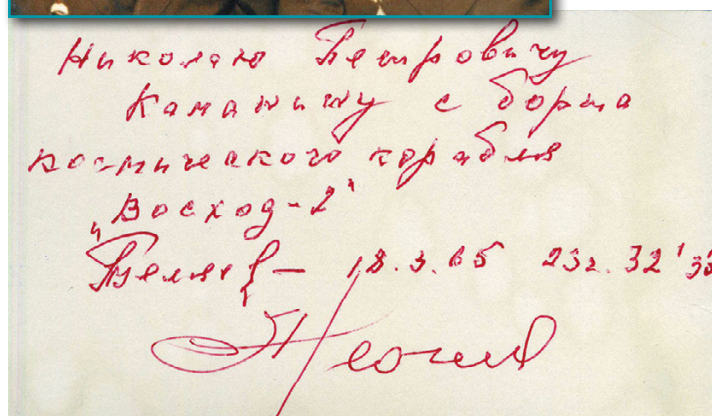 Николаю Петровичу
Каманину с борта
космического корабля
„Восход-2"
Беляев — 18.3.65 23г. 32'
Леонов